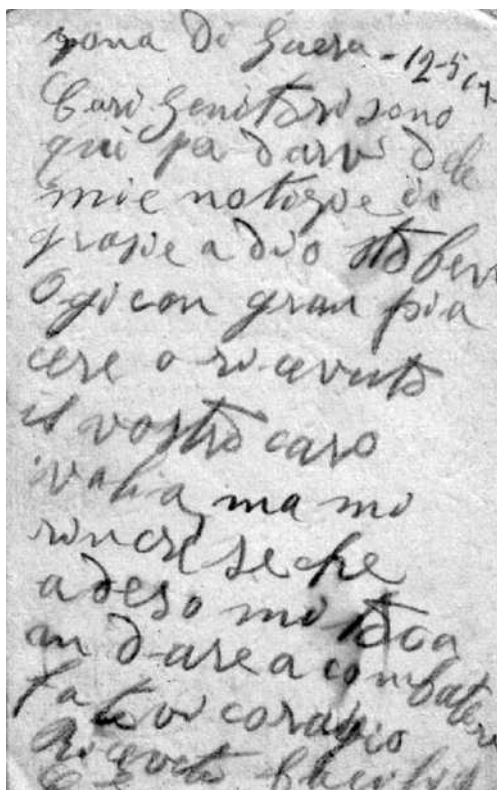 zona di guera - 12-5-17
Cari Genitori sono
qui pa darvi dele
mie notizie io
grasie a dio sto ben
Ogi con gran pia
cere o ricevuto
il vostro caro
valia ma mi
rincrese che
adeso mi stoa
an dare a combatere
fatevi coragio
Ricevete